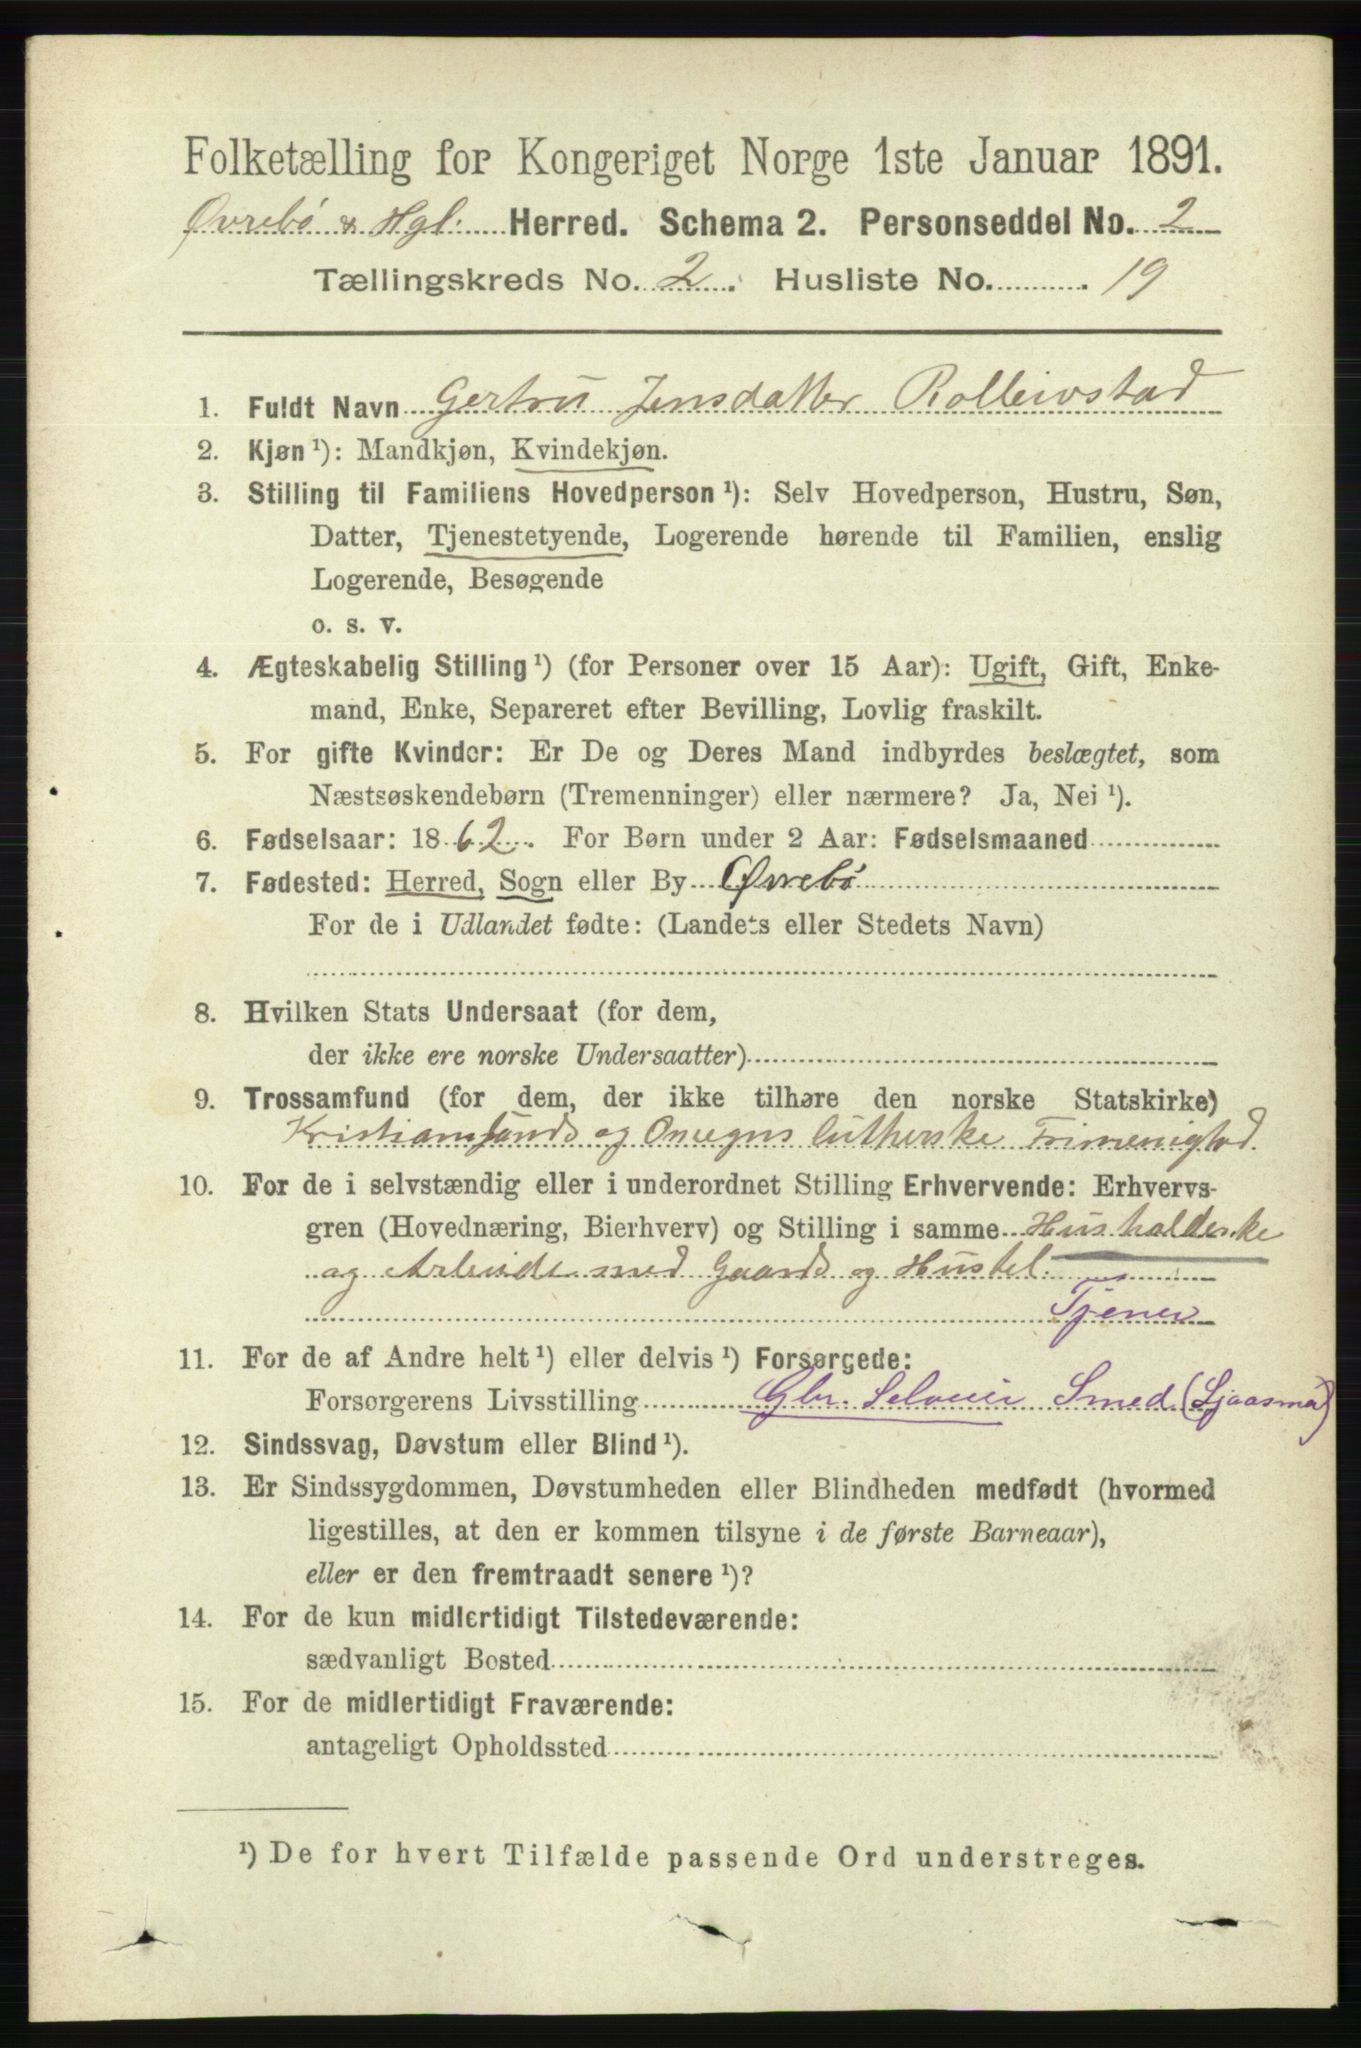 Folketælling for Kongeriget Norge 1ste Januar 1891.
Øvrebø & Hgl. Herred. Schema 2. Personseddel No. 2
Tællingskreds No. 2. Husliste No. 19
1. Fuldt Navn Gertru Jensdatter Rolleivstad
2. Kjøn ¹): Mandkjøn, Kvindekjøn.
3. Stilling til Familiens Hovedperson ¹): Selv Hovedperson, Hustru, Søn,
Datter, Tjenestetyende, Logerende hørende til Familien, enslig
Logerende, Besøgende
o. s. v.
4. Ægteskabelig Stilling ¹) (for Personer over 15 Aar): Ugift, Gift, Enke-
mand, Enke, Separeret efter Bevilling, Lovlig fraskilt.
5. For gifte Kvinder: Er De og Deres Mand indbyrdes beslægtet, som
Næstsøskendebørn (Tremenninger) eller nærmere? Ja, Nei ¹).
6. Fødselsaar: 1862. For Børn under 2 Aar: Fødselsmaaned
7. Fødested: Herred, Sogn eller By Øvrebø
For de i Udlandet fødte: (Landets eller Stedets Navn)
8. Hvilken Stats Undersaat (for dem,
der ikke ere norske Undersaatter)
9. Trossamfund (for dem, der ikke tilhøre den norske Statskirke)
Kristiansands og Omegns lutherske Frimenighed.
10. For de i selvstændig eller i underordnet Stilling Erhvervende: Erhvervs-
gren (Hovednæring, Bierhverv) og Stilling i samme Husholderske
og Arbeide med Gaards og Hustel.
Tjener
11. For de af Andre helt ¹) eller delvis ¹) Forsørgede:
Forsørgerens Livsstilling Gbr. Selveier Smed
12. Sindssvag, Døvstum eller Blind ¹).
13. Er Sindssygdommen, Døvstumheden eller Blindheden medfødt (hvormed
ligestilles, at den er kommen tilsyne i de første Barneaar),
eller er den fremtraadt senere ¹)?
14. For de kun midlertidigt Tilstedeværende:
sædvanligt Bosted
15. For de midlertidigt Fraværende:
antageligt Opholdssted
¹) De for hvert Tilfælde passende Ord understreges.